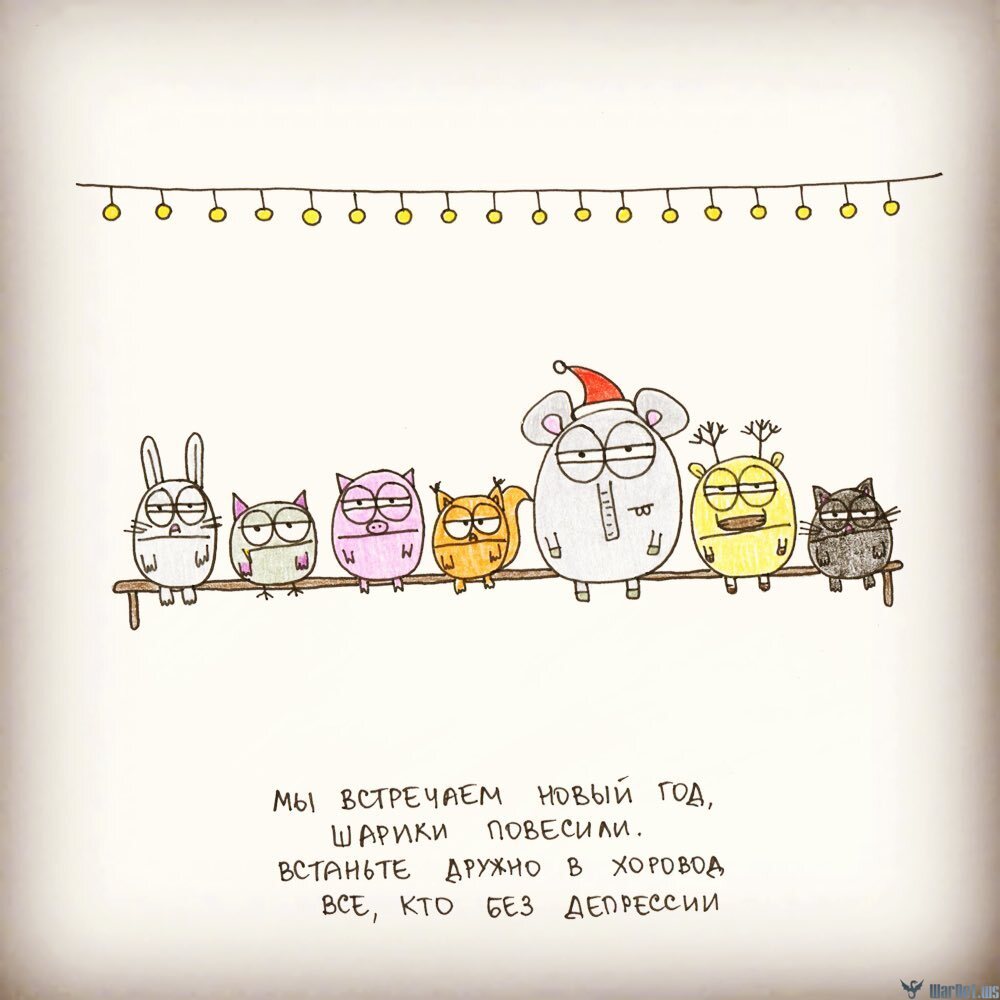 МЫ ВСТРЕЧАЕМ НОВЫЙ ГОД,
ШАРИКИ ПОВЕСИЛИ.
ВСТАНЬТЕ ДРУЖНО В ХОРОВОД
ВСЕ, КТО БЕЗ ДЕПРЕССИИ
WarNet.ws